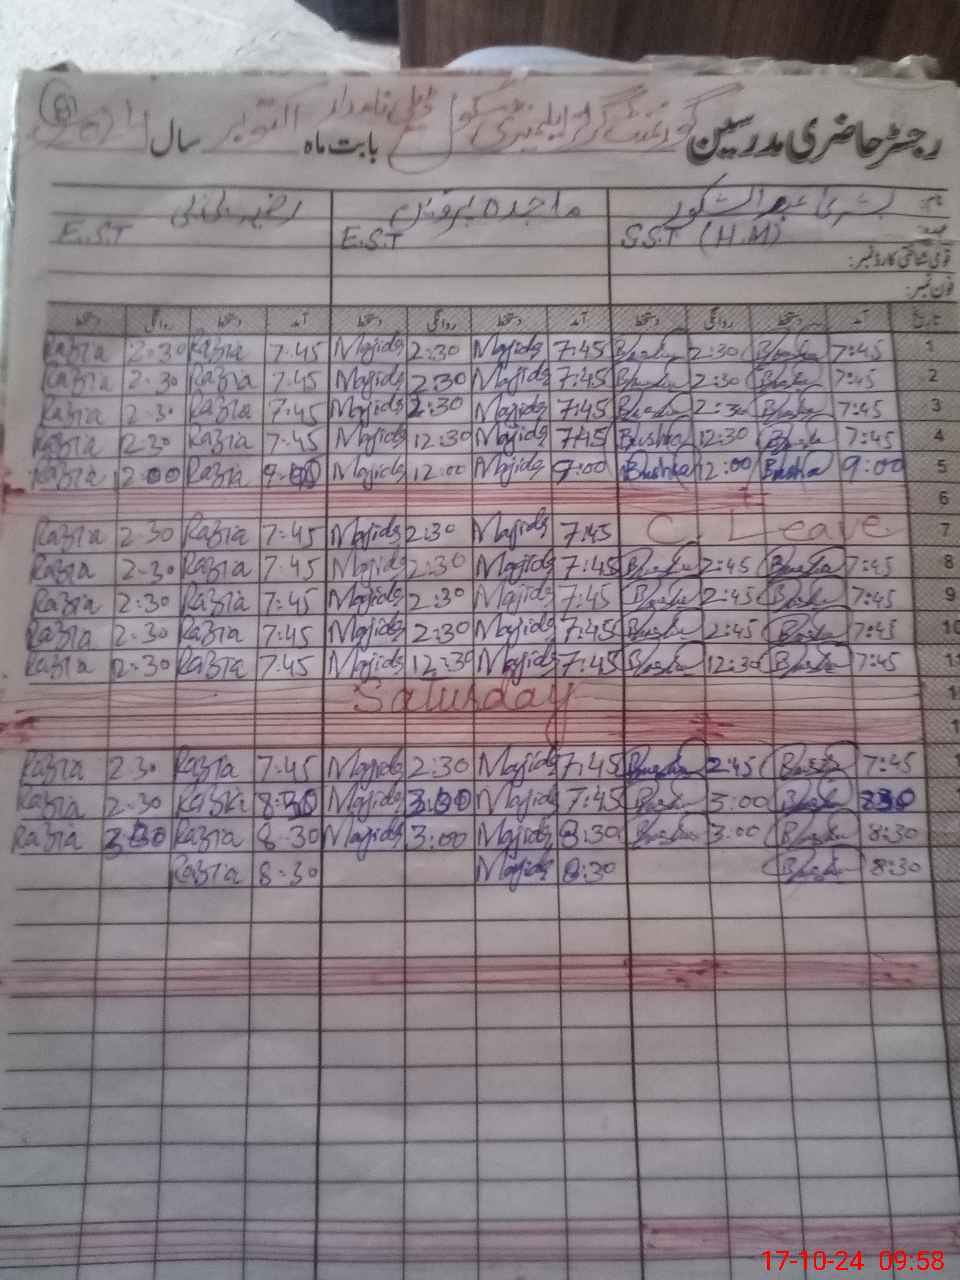 رجسٹر حاضری مدرسین گورنمنٹ گرلز ایلیمنٹری سکول بابت ماہ اکتوبر سال
نام: بشریٰ عبدالشکور ماجدہ پروین
عہدہ: S.S.T (H.M) E.S.T E.S.T
قومی شناختی کارڈ نمبر:
فون نمبر:
تاریخ آمد دستخط روانگی دستخط آمد دستخط روانگی دستخط آمد دستخط روانگی دستخط
Razia 2:30 Razia 7:45 Majida 2:30 Majida 7:45 Bushra 2:30 Bushra 7:45 1
Razia 2:30 Razia 7:45 Majida 2:30 Majida 7:45 Bushra 2:30 Bushra 7:45 2
Razia 2:30 Razia 7:45 Majida 2:30 Majida 7:45 Bushra 2:30 Bushra 7:45 3
Razia 12:30 Razia 7:45 Majida 12:30 Majida 7:45 Bushra 12:30 Bushra 7:45 4
Razia 12:00 Razia 9:00 Majida 12:00 Majida 9:00 Bushra 12:00 Bushra 9:00 5
6
Razia 2:30 Razia 7:45 Majida 2:30 Majida 7:45 C. Leave 7
Razia 2:30 Razia 7:45 Majida 2:30 Majida 7:45 Bushra 2:45 Bushra 7:45 8
Razia 2:30 Razia 7:45 Majida 2:30 Majida 7:45 Bushra 2:45 Bushra 7:45 9
Razia 2:30 Razia 7:45 Majida 2:30 Majida 7:45 Bushra 2:45 Bushra 7:45 10
Razia 12:30 Razia 7:45 Majida 12:30 Majida 7:45 Bushra 12:30 Bushra 7:45 11
Saturday
Razia 2:30 Razia 7:45 Majida 2:30 Majida 7:45 Bushra 2:45 Bushra 7:45
Razia 2:30 Razia 8:30 Majida 3:00 Majida 7:45 Bushra 3:00 Bushra 8:30
Razia 3:00 Razia 8:30 Majida 3:00 Majida 8:30 Bushra 3:00 Bushra 8:30
Razia 8:30 Majida 8:30 Bushra 8:30
17-10-24 09:58